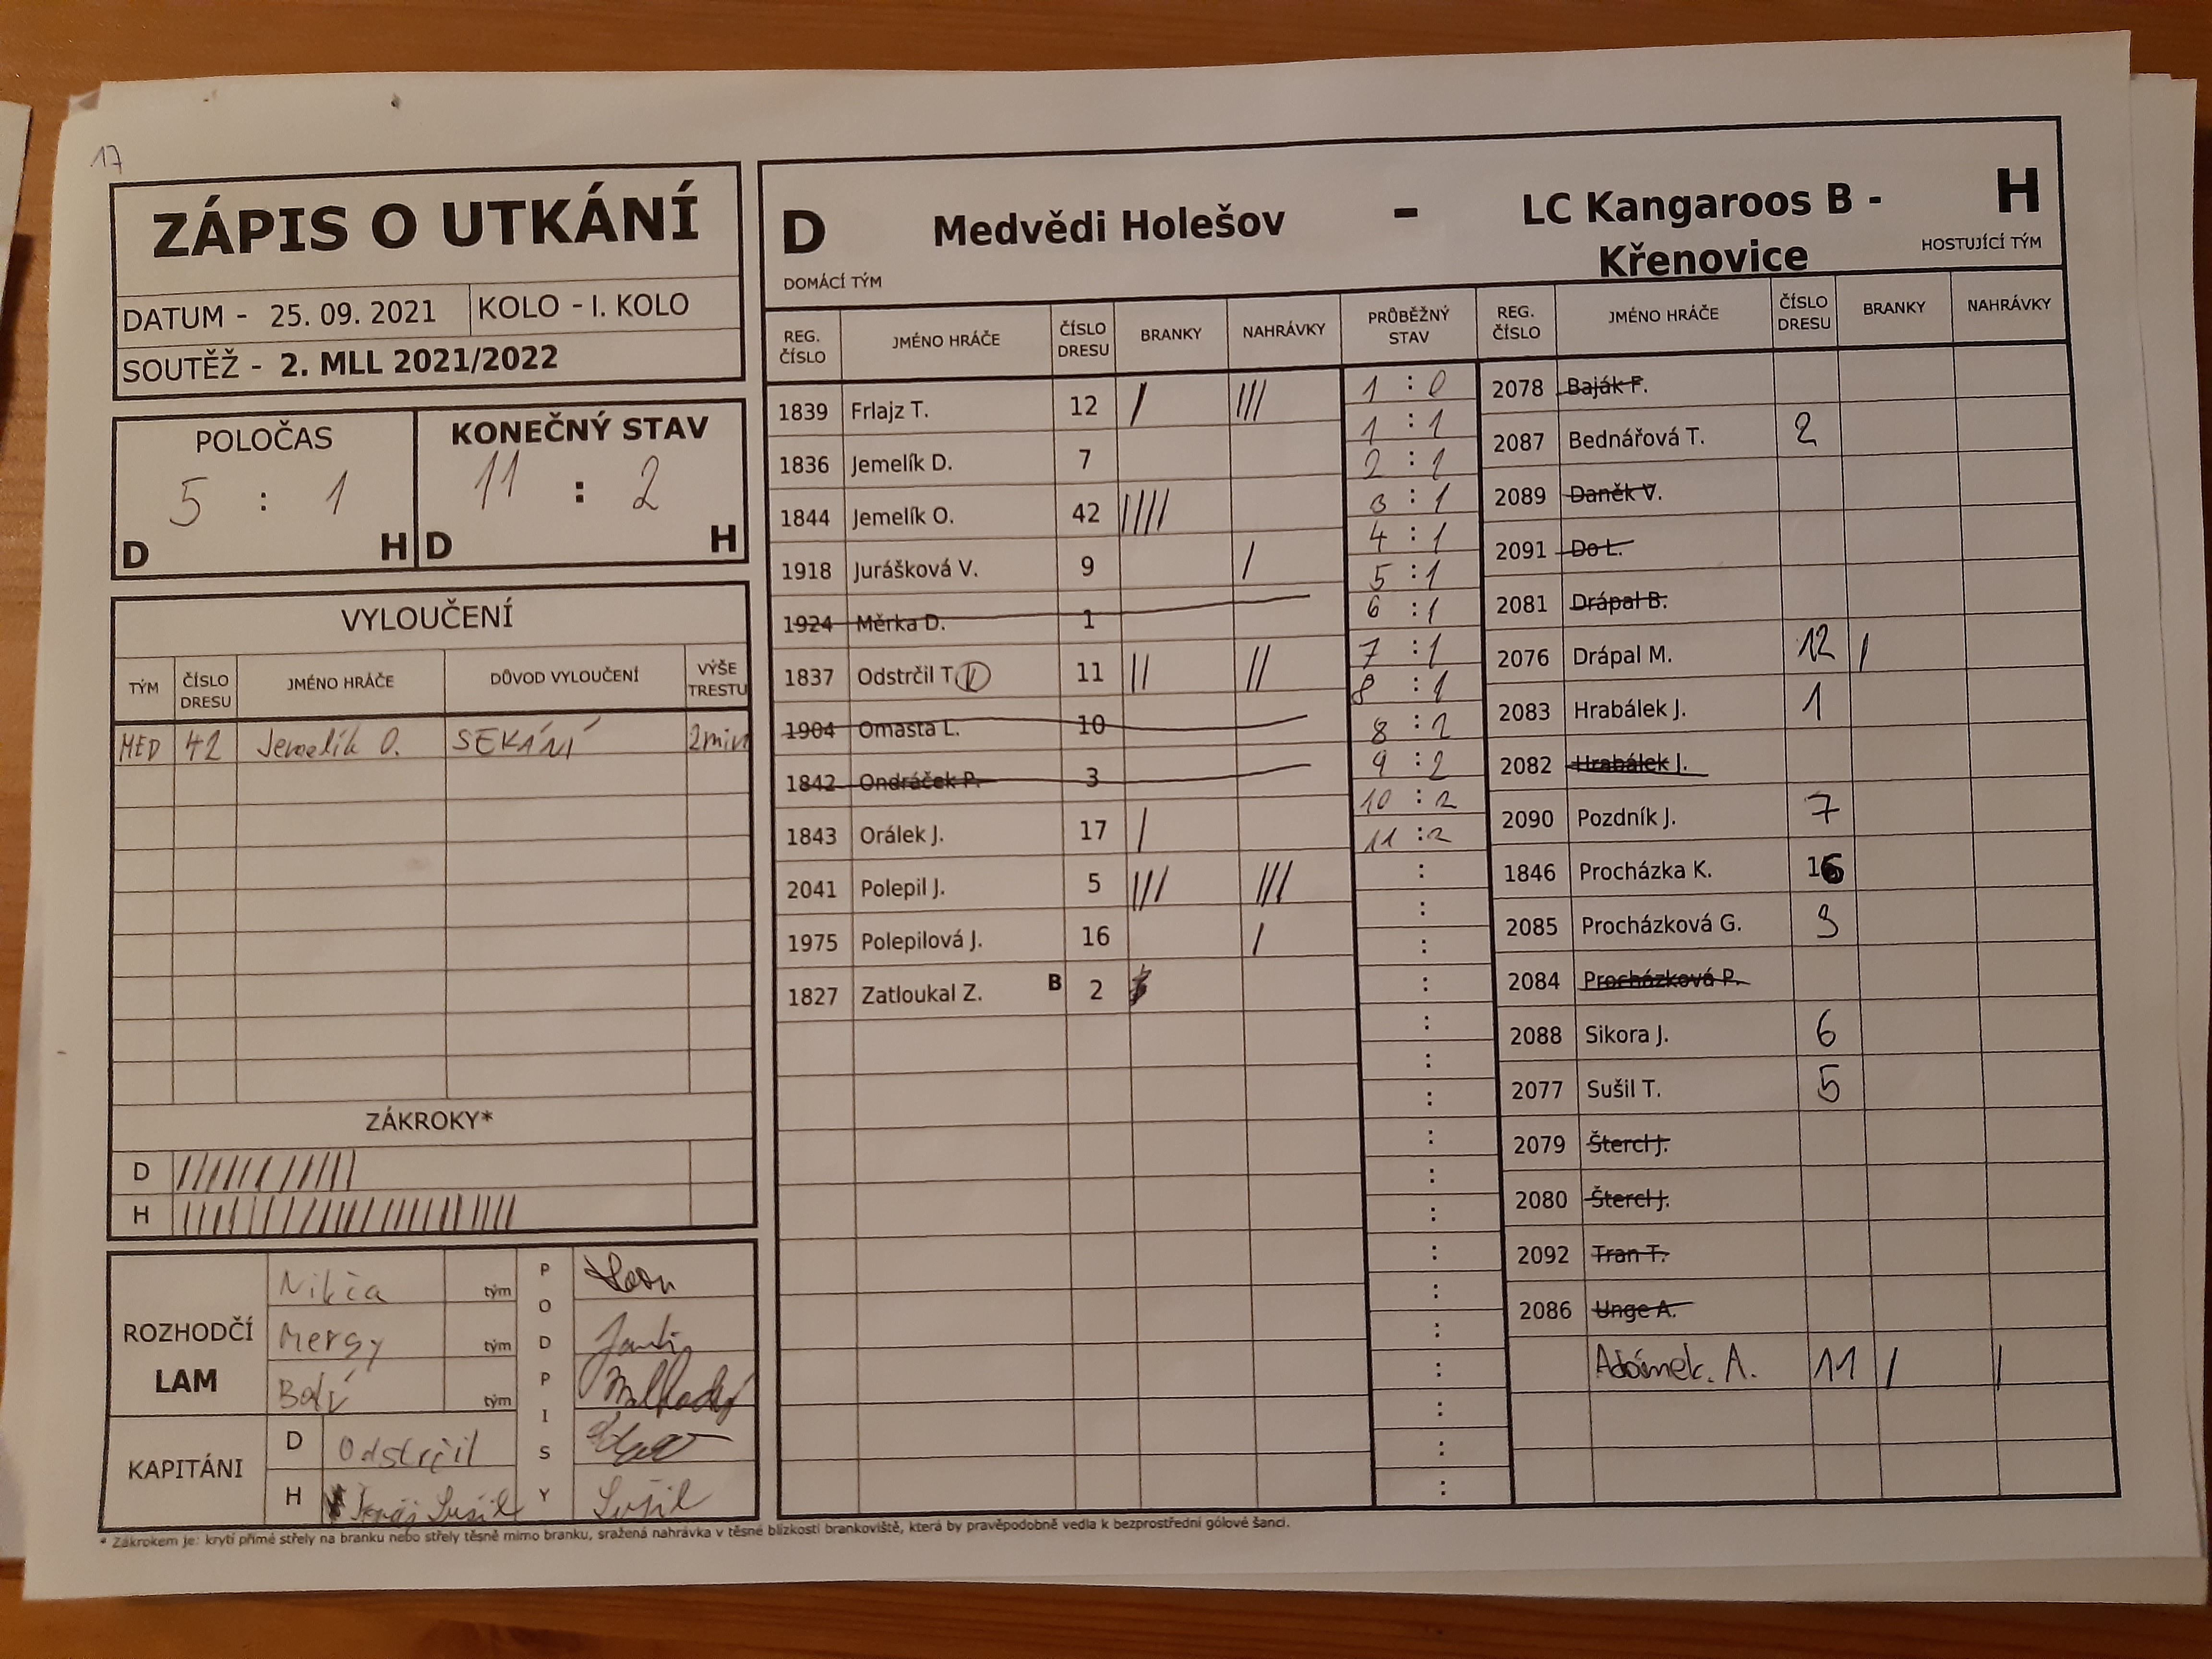 17
ZÁPIS O UTKÁNÍ
DATUM - 25. 09. 2021 KOLO - I. KOLO
SOUTĚŽ - 2. MLL 2021/2022
POLOČAS KONEČNÝ STAV
5 : 1 11 : 2
D H D H
VYLOUČENÍ
TÝM ČÍSLO DRESU JMÉNO HRÁČE DŮVOD VYLOUČENÍ VÝŠE TRESTU
MED 42 Jemelík O. SEKÁNÍ 2min
ZÁKROKY*
D
H
ROZHODČÍ LAM
Nikča tým
Mergy tým
tým
PODPISY
KAPITÁNI
D Odstrčil
H Sušil Sušil
D Medvědi Holešov - LC Kangaroos B - Křenovice H
DOMÁCÍ TÝM HOSTUJÍCÍ TÝM
REG. ČÍSLO JMÉNO HRÁČE ČÍSLO DRESU BRANKY NAHRÁVKY PRŮBĚŽNÝ STAV REG. ČÍSLO JMÉNO HRÁČE ČÍSLO DRESU BRANKY NAHRÁVKY
1839 Frlajz T. 12 / ///
1836 Jemelík D. 7
1844 Jemelík O. 42 ////
1918 Jurášková V. 9 /
1924 Měrka D. 1
1837 Odstrčil T. 11 // //
1904 Omasta L. 10
1842 Ondráček P. 3
1843 Orálek J. 17 /
2041 Polepil J. 5 /// ///
1975 Polepilová J. 16 /
1827 Zatloukal Z. B 2
1 : 0
1 : 1
2 : 1
3 : 1
4 : 1
5 : 1
6 : 1
7 : 1
8 : 1
8 : 2
9 : 2
10 : 2
11 : 2
2078 Baják F.
2087 Bednářová T. 2
2089 Daněk V.
2091 Do L.
2081 Drápal B.
2076 Drápal M. 12 /
2083 Hrabálek J. 1
2082 Hrabálek J.
2090 Pozdník J. 7
1846 Procházka K. 16
2085 Procházková G. 3
2084 Procházková P.
2088 Sikora J. 6
2077 Sušil T. 5
2079 Štercl J.
2080 Štercl J.
2092 Tran T.
2086 Unge A.
Adámek. A. 11 / /
* Zákrokem je: krytí přímé střely na branku nebo střely těsně mimo branku, sražená nahrávka v těsné blízkosti brankoviště, která by pravěpodobně vedla k bezprostřední gólové šanci.